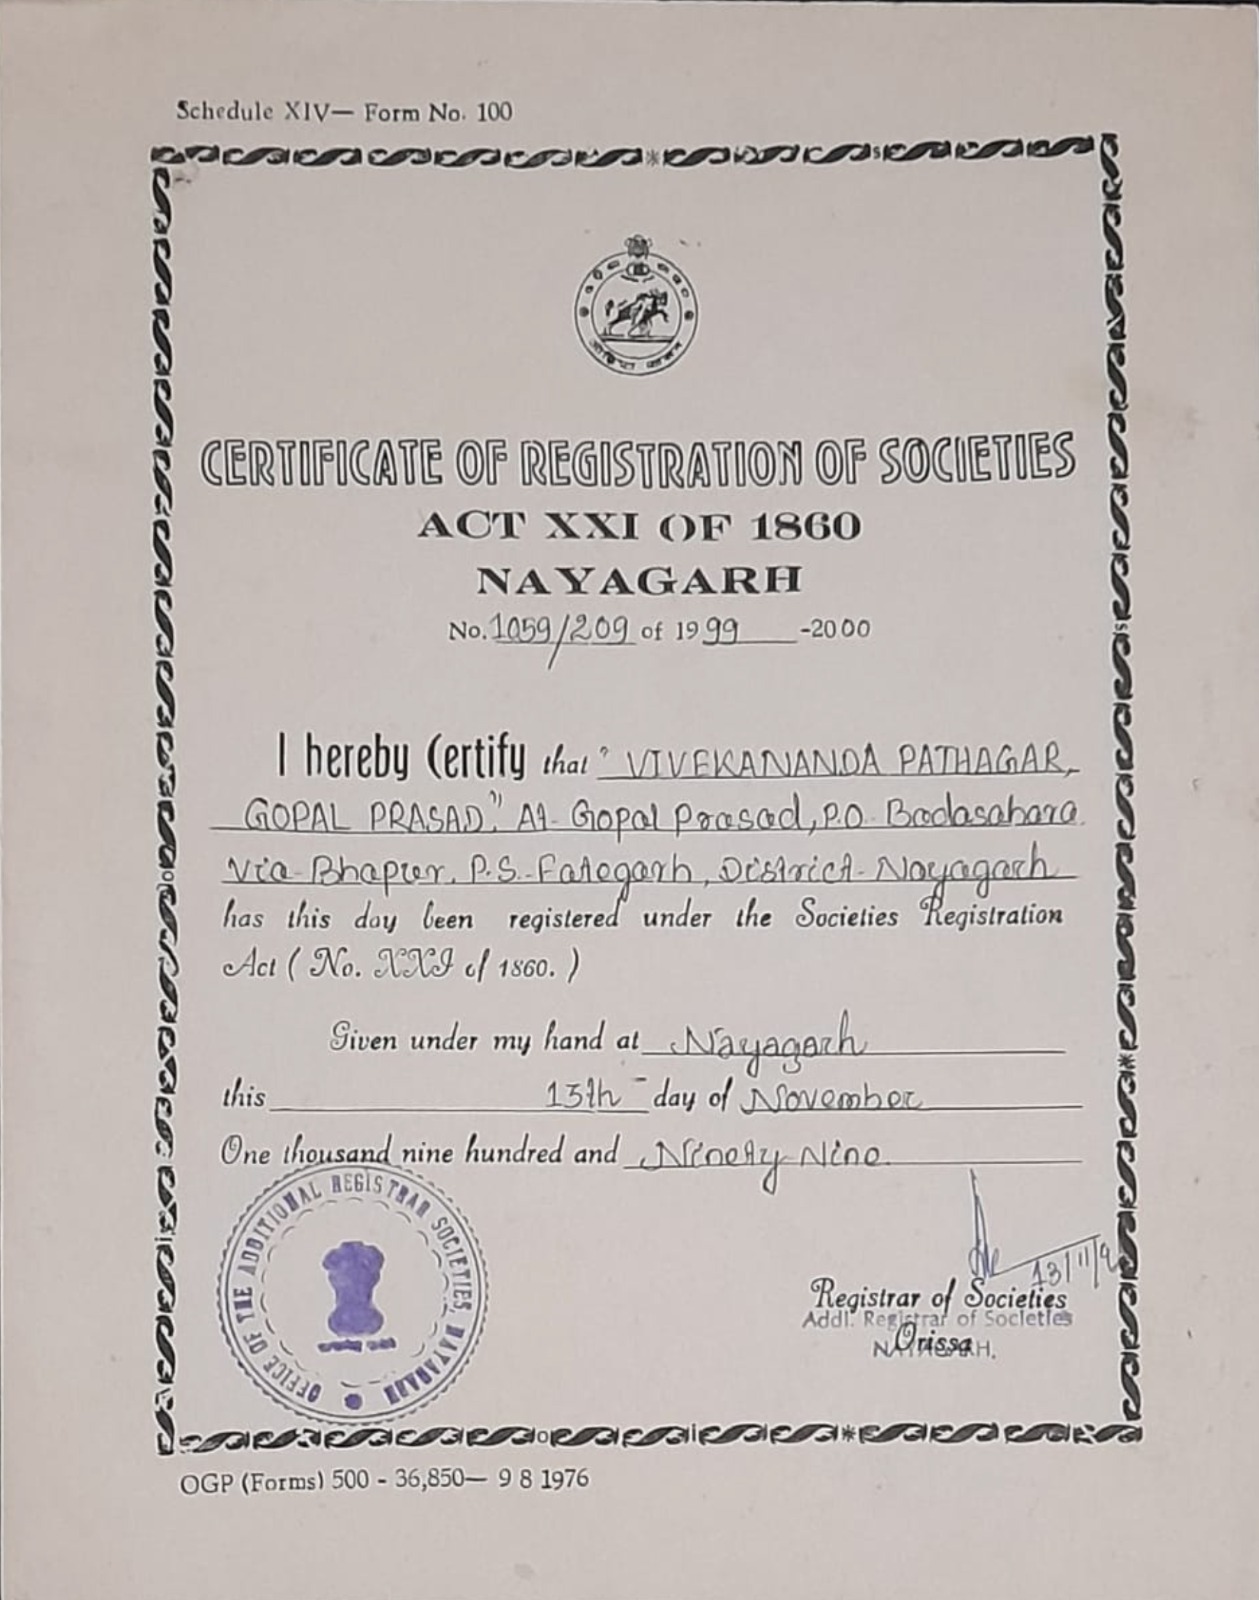 Schedule XIV— Form No. 100
CERTIFICATE OF REGISTRATION OF SOCIETIES
ACT XXI OF 1860
NAYAGARH
No. 1059/209 of 1999 -2000
I hereby Certify that " VIVEKANANDA PATHAGAR,
GOPAL PRASAD." At- Gopal Prasad, P.O- Badasahara
Via- Bhapur, P.S.- Fategarh, District- Nayagarh
has this day been registered under the Societies Registration
Act ( No. XXI of 1860. )
Given under my hand at Nayagarh
this 13th day of November
One thousand nine hundred and Ninety Nine.
OFFICE OF THE ADDITIONAL REGISTRAR SOCIETIES, NAYAGARH
13/11/9
Registrar of Societies
Addl. Registrar of Societies
Orissa
NAYAGARH.
OGP (Forms) 500 - 36,850— 9 8 1976